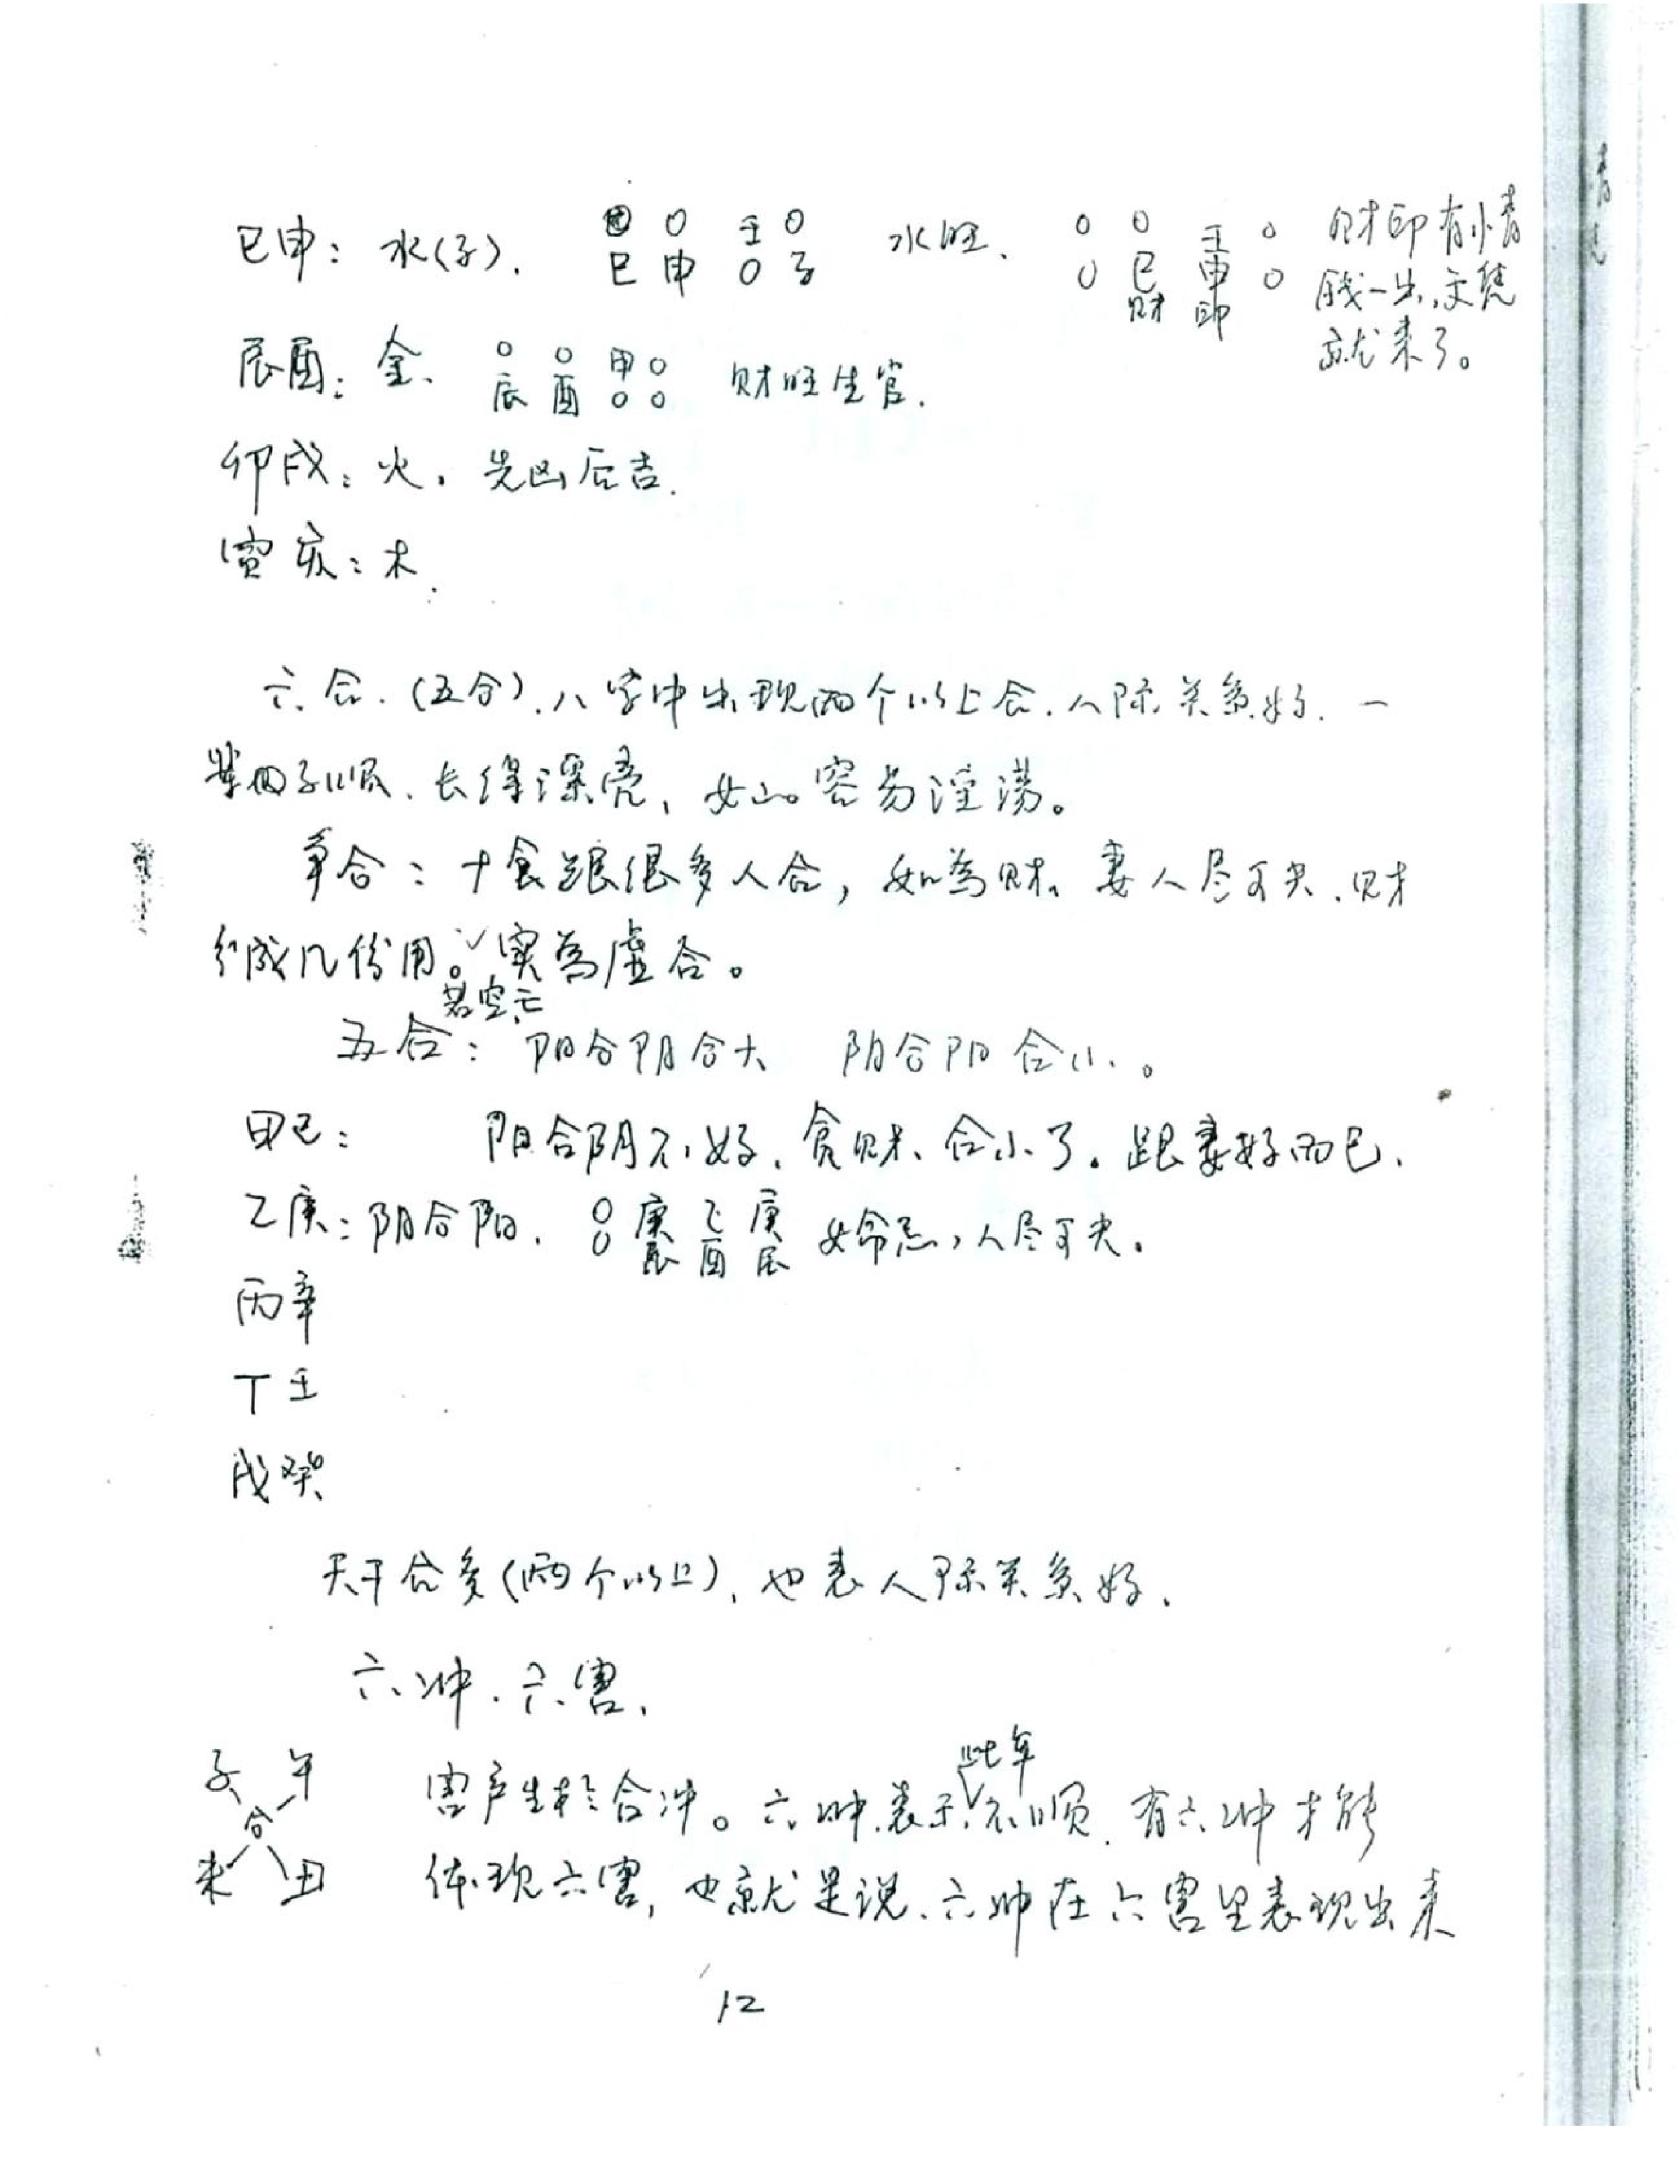 巳申：水(子). 〇 〇 壬 〇 水旺、 〇 〇 壬 〇 财印有情
巳 申 〇 子 〇 巳 申 〇 钱一出,文凭
财 印 就来了。
辰酉：金、 〇 〇 甲 〇 财旺生官.
辰 酉 〇 〇
卯戌：火，先凶后吉.
寅亥：木.
六合.(五合).八字中出现两个以上合.人际关系好.一
辈子顺、长得漂亮、女心容易淫荡。
争合：十食跟很多人合，如为财、妻人尽可夫、财
分成几份用。实为虚合。
若空亡
五合：阳合阴合大 阴合阳合小。
甲己： 阳合阴不好、贪财、合小了。跟妻好而已.
乙庚：阴合阳. 〇 庚 乙 庚 女命忌，人尽可夫.
〇 辰 酉 辰
丙辛
丁壬
戊癸
天干合多(两个以上)、也表人际关系好.
六冲.六害.
子 午 此年
合 害产生于合冲。六冲表示不顺.有六冲才能
未 丑 体现六害,也就是说、六冲在六害里表现出来
12